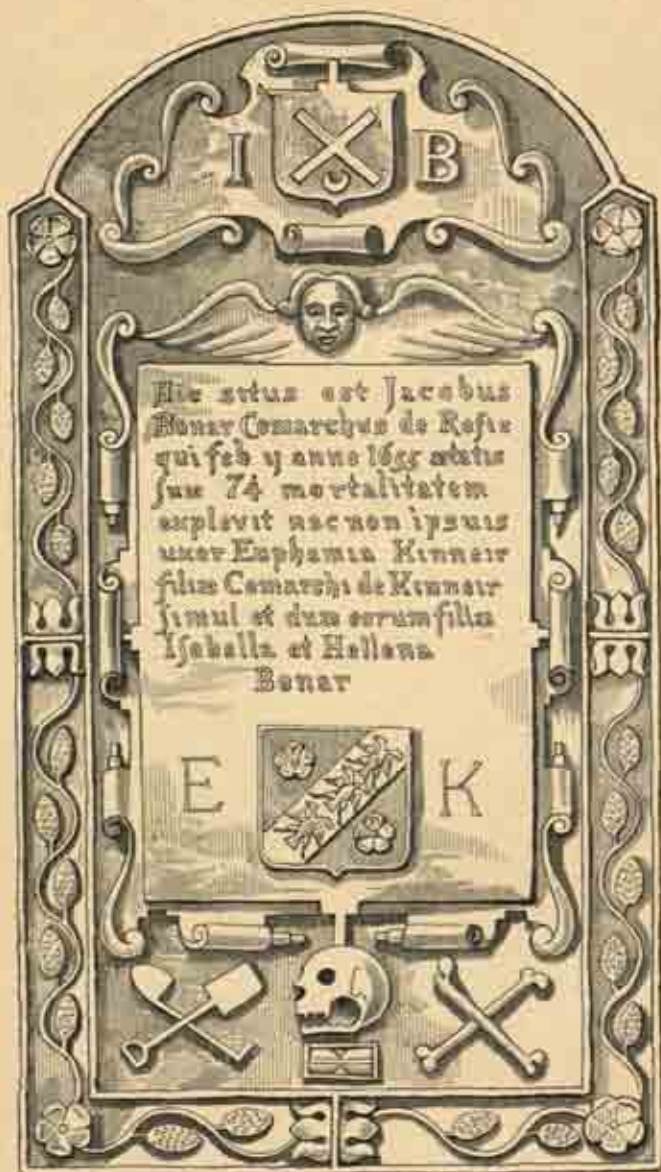 I B
Hic situs est Jacobus
Bonar Comarchus de Rosie
qui feb y anno 1655 ætatis
suæ 74 mortalitatem
explevit nec non ipsuis
uxor Euphamia Kinneir
filiæ Comarchi de Kinneir
simul et duæ eorum filiæ
Isabella et Hellena
Bonar
E K